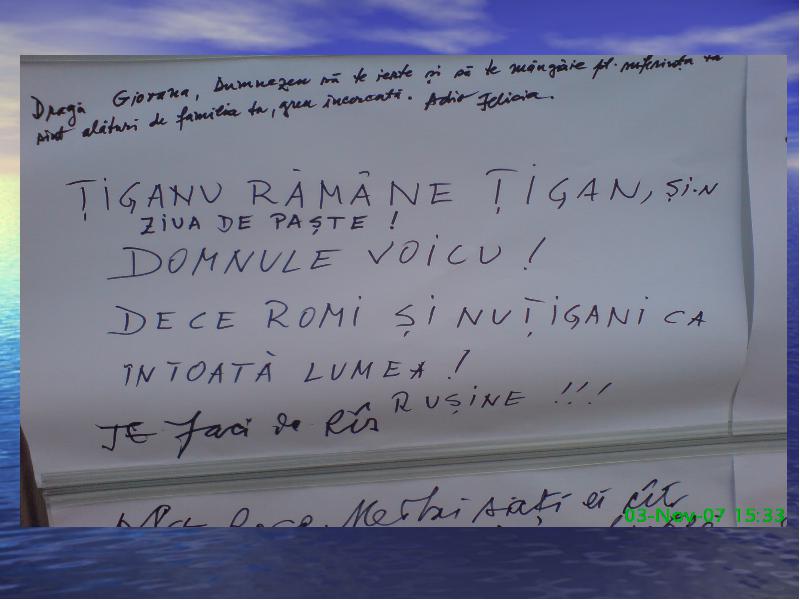 Dragă Giovana, Dumnezeu să te ierte și să te mângâie pt. suferința ta
sînt alături de familia ta, greu încercată. Adio Felicia.
ȚIGANU RĂMÂNE ȚIGAN, ȘI-N
ZIUA DE PAȘTE !
DOMNULE VOICU !
DECE ROMI ȘI NU ȚIGANI CA
ÎN TOATĂ LUMEA !
RUȘINE !!!
TE faci de Rîs
03-Nov-07 15:33